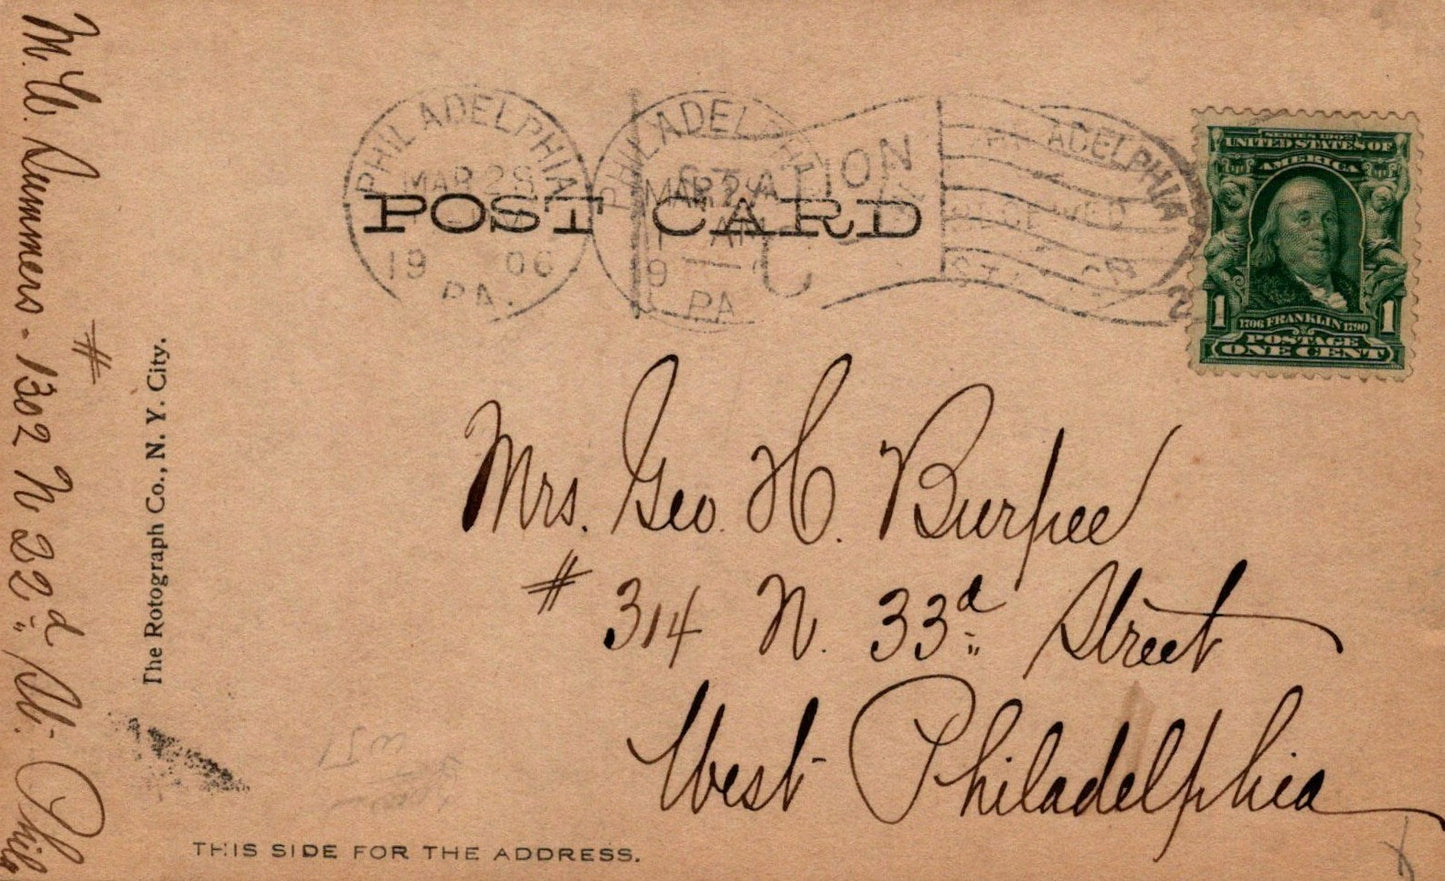 PHILADELPHIA
MAR 28
19 06
PA.
PHILADELPHIA
STA
MAR 28
AM
19
PA
STATION
PHILADELPHIA
RECEIVED
POST CARD
SERIES 1902
UNITED STATES OF
AMERICA
1 1
1706 FRANKLIN 1790
POSTAGE
ONE CENT
Mrs. Geo. H. Burpee
# 314 N. 33d Street
West Philadelphia
M. W. Summers - # 1302 N 22d St. Phila
The Rotograph Co., N. Y. City.
THIS SIDE FOR THE ADDRESS.